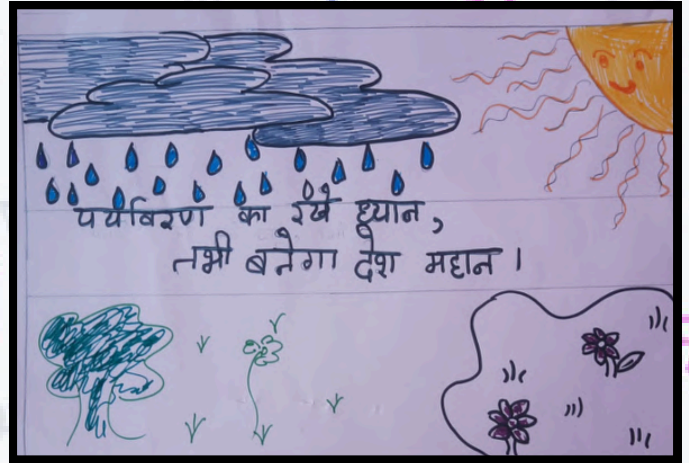 पर्यावरण का रखें ध्यान,
तभी बनेगा देश महान।